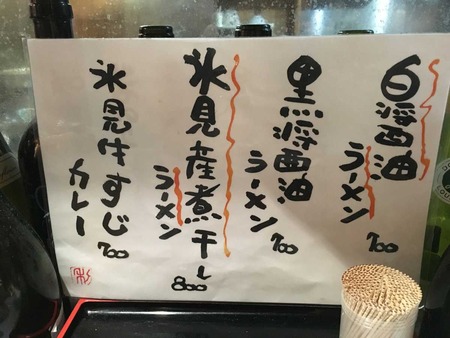 白醤油
ラーメン
700
黒醤油
ラーメン
700
氷見産煮干し
ラーメン
800
氷見牛すじ
カレー
700